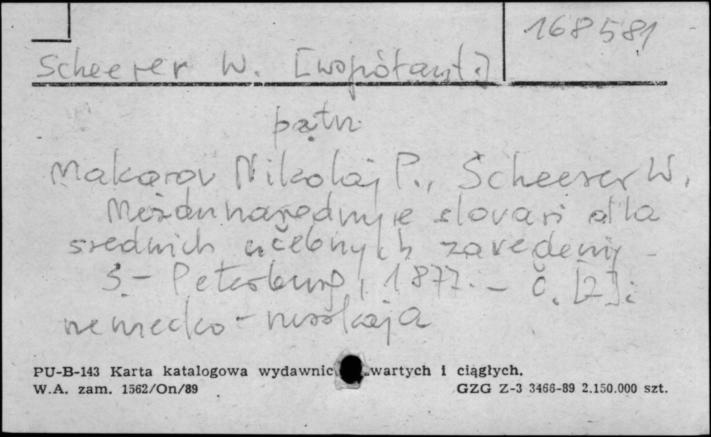 168581
Scheerer W. [współaut.]
patrz
Makarov Nikolaj P., Scheerer W.
Meždunarodnyje slovari dlа
srednich učebnych zavedenij -
S.- Peterburg, 1877. - Č. [2]:
nemecko - russkaja
PU-B-143 Karta katalogowa wydawnic wartych i ciągłych.
W.A. zam. 1562/On/89 GZG Z-3 3466-89 2.150.000 szt.